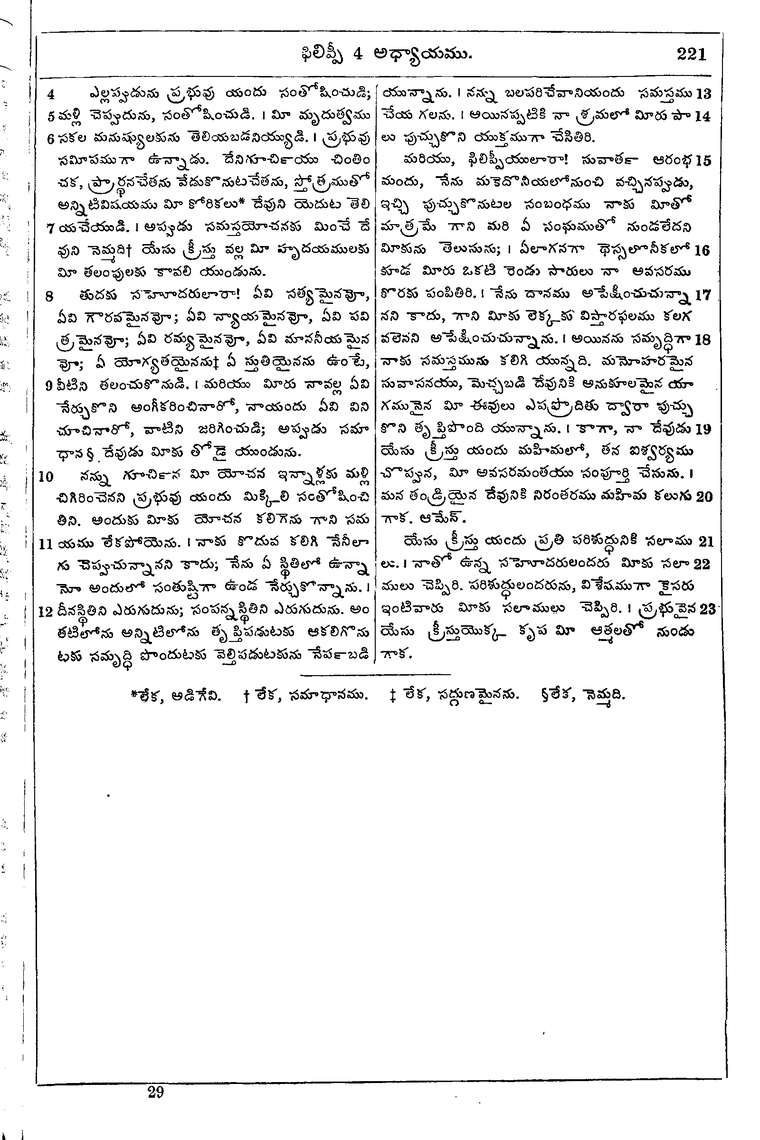 ఫిలిప్పీ 4 అధ్యాయము. 221
4 ఎల్లప్పుడును ప్రభువు యందు సంతోషించుడి;
5 మళ్లీ చెప్పుదును, సంతోషించుడి. । మీ మృదుత్వము
6 సకల మనుష్యులకును తెలియబడనియ్యుడి. । ప్రభువు
సమీపముగా ఉన్నాడు. దేనిగూర్చియు చింతిం
చక, ప్రార్థనచేతను వేడుకొనుటచేతను, స్తోత్రముతో
అన్నిటివిషయము మీ కోరికలు* దేవుని యెదుట తెలి
7 యచేయుడి. । అప్పుడు సమస్తయోచనకు మించే దే
వుని నెమ్మది† యేసు క్రీస్తు వల్ల మీ హృదయములకు
మీ తలంపులకు కావలి యుండును.
8 తుదకు సహెూదరులారా! ఏవి సత్యమైనవో,
ఏవి గౌరవమైనవో; ఏవి న్యాయమైనవో, ఏవి పవి
త్రమైనవో; ఏవి రమ్యమైనవో, ఏవి మాననీయమైన
వో; ఏ యోగ్యతయైనను‡ ఏ స్తుతియైనను ఉంటే,
9 వీటిని తలంచుకొనుడి. । మరియు మీరు నావల్ల ఏవి
నేర్చుకొని అంగీకరించినారో, నాయందు ఏవి విని
చూచినారో, వాటిని జరిగించుడి; అప్పుడు సమా
ధాన§ దేవుడు మీకు తోడై యుండును.
10 నన్ను గూర్చిన మీ యోచన ఇన్నాళ్లకు మళ్లి
చిగిరించెనని ప్రభువు యందు మిక్కిలి సంతోషించి
తిని. అందుకు మీకు యోచన కలిగెను గాని సమ
11 యము లేకపోయెను. । నాకు కొదువ కలిగి నేనీలా
గు చెప్పుచున్నానని కాదు; నేను ఏ స్థితిలో ఉన్నా
నో అందులో సంతుష్టిగా ఉండ నేర్చుకొన్నాను. ।
12 దీనస్థితిని ఎరుగుదును; సంపన్నస్థితిని ఎరుగుదును. అం
తటిలోను అన్నిటిలోను తృప్తిపడుటకు ఆకలిగొను
టకు సమృద్ధి పొందుటకు వెల్తిపడుటకును నేర్పబడి
యున్నాను. । నన్ను బలపరిచేవానియందు సమస్తము 13
చేయ గలను. । అయినప్పటికి నా శ్రమలో మీరు పా 14
లు పుచ్చుకొని యుక్తముగా చేసితిరి.
మరియు, ఫిలిప్పీయులారా! సువార్త ఆరంభ 15
మందు, నేను మకెదొనీయలోనుంచి వచ్చినప్పుడు,
ఇచ్చి పుచ్చుకొనుటల సంబంధము నాకు మీతో
మాత్రమే గాని మరి ఏ సంఘముతో నుండలేదని
మీకును తెలుసును; । ఏలాగనగా థెస్సలొనీకలో 16
కూడ మీరు ఒకటి రెండు సారులు నా అవసరము
కొరకు పంపితిరి. । నేను దానము అపేక్షించుచున్నా 17
నని కాదు, గాని మీకు లెక్కకు విస్తారఫలము కలగ
వలెనని అపేక్షించుచున్నాను. । అయినను సమృద్ధిగా 18
నాకు సమస్తమును కలిగి యున్నది. మనోహరమైన
సువాసనయు, మెచ్చబడి దేవునికి అనుకూలమైన యా
గమునైన మీ ఈవులు ఎపఫ్రొదితు ద్వారా పుచ్చు
కొని తృప్తిపొంది యున్నాను. । కాగా, నా దేవుడు 19
యేసు క్రీస్తు యందు మహిమలో, తన ఐశ్వర్యము
చొప్పున, మీ అవసరమంతయు సంపూర్తి చేసును. ।
మన తండ్రియైన దేవునికి నిరంతరము మహిమ కలుగు 20
గాక. ఆమేన్.
యేసు క్రీస్తు యందు ప్రతి పరిశుద్ధునికి సలాము 21
లు. । నాతో ఉన్న సహెూదరులందరు మీకు సలా 22
ములు చెప్పిరి. పరిశుద్ధులందరును, విశేషముగా కైసరు
ఇంటివారు మీకు సలాములు చెప్పిరి. । ప్రభువైన 23
యేసు క్రీస్తుయొక్క కృప మీ ఆత్మలతో నుండు
గాక.
*లేక, అడిగేవి. † లేక, సమాధానము. ‡ లేక, సద్గుణమైనను. §లేక, నెమ్మది.
29